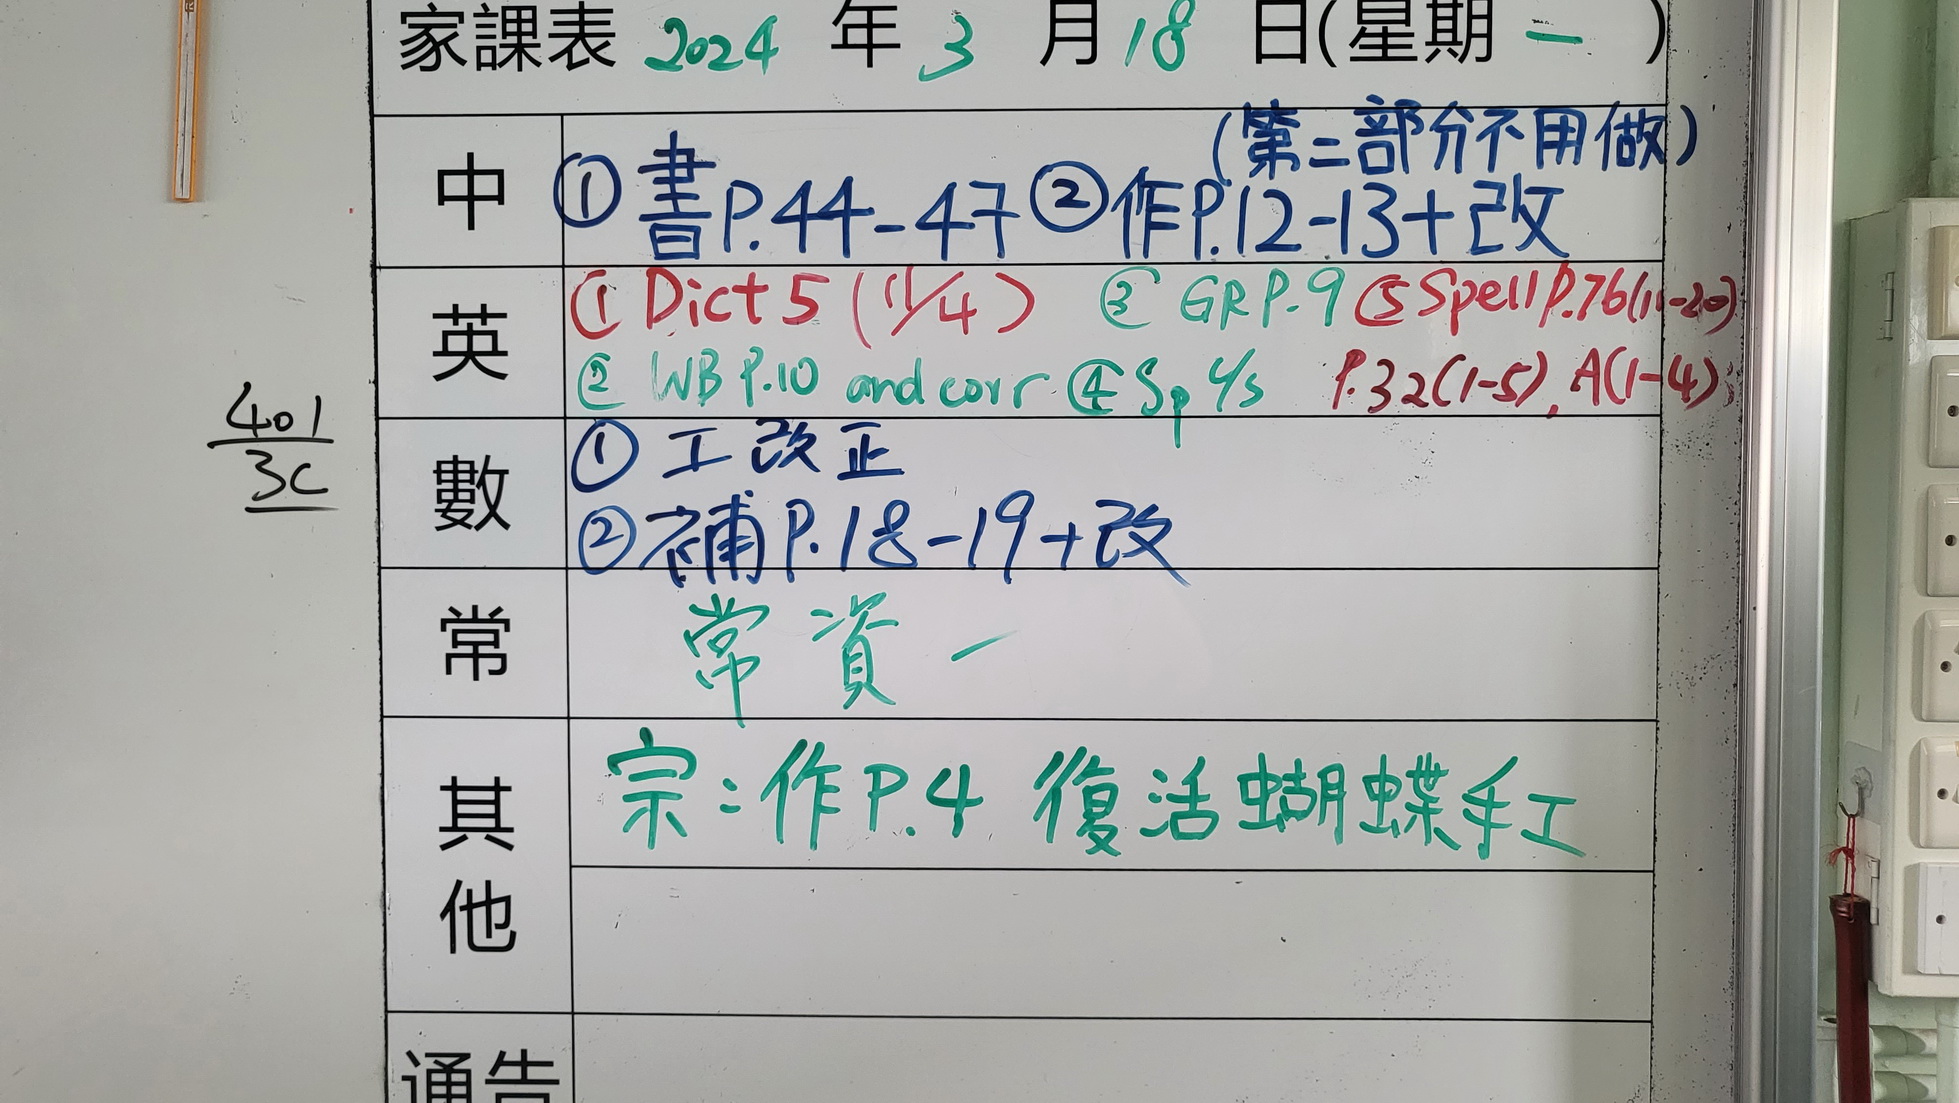 家課表 2024 年 3 月 18 日(星期 一 )
(第二部分不用做)
中 ① 書P.44-47 ② 作P.12-13+改
英 ① Dict 5 (11/4) ③ GR P.9 ⑤ Spell P.76(11-20)
② WB P.10 and corr ④ Sp 4/s P.32(1-5), A(1-4);
401
3C
數 ① 工改正
② 補P.18-19+改
常 常資一
其他 宗：作P.4 復活蝴蝶手工
通告